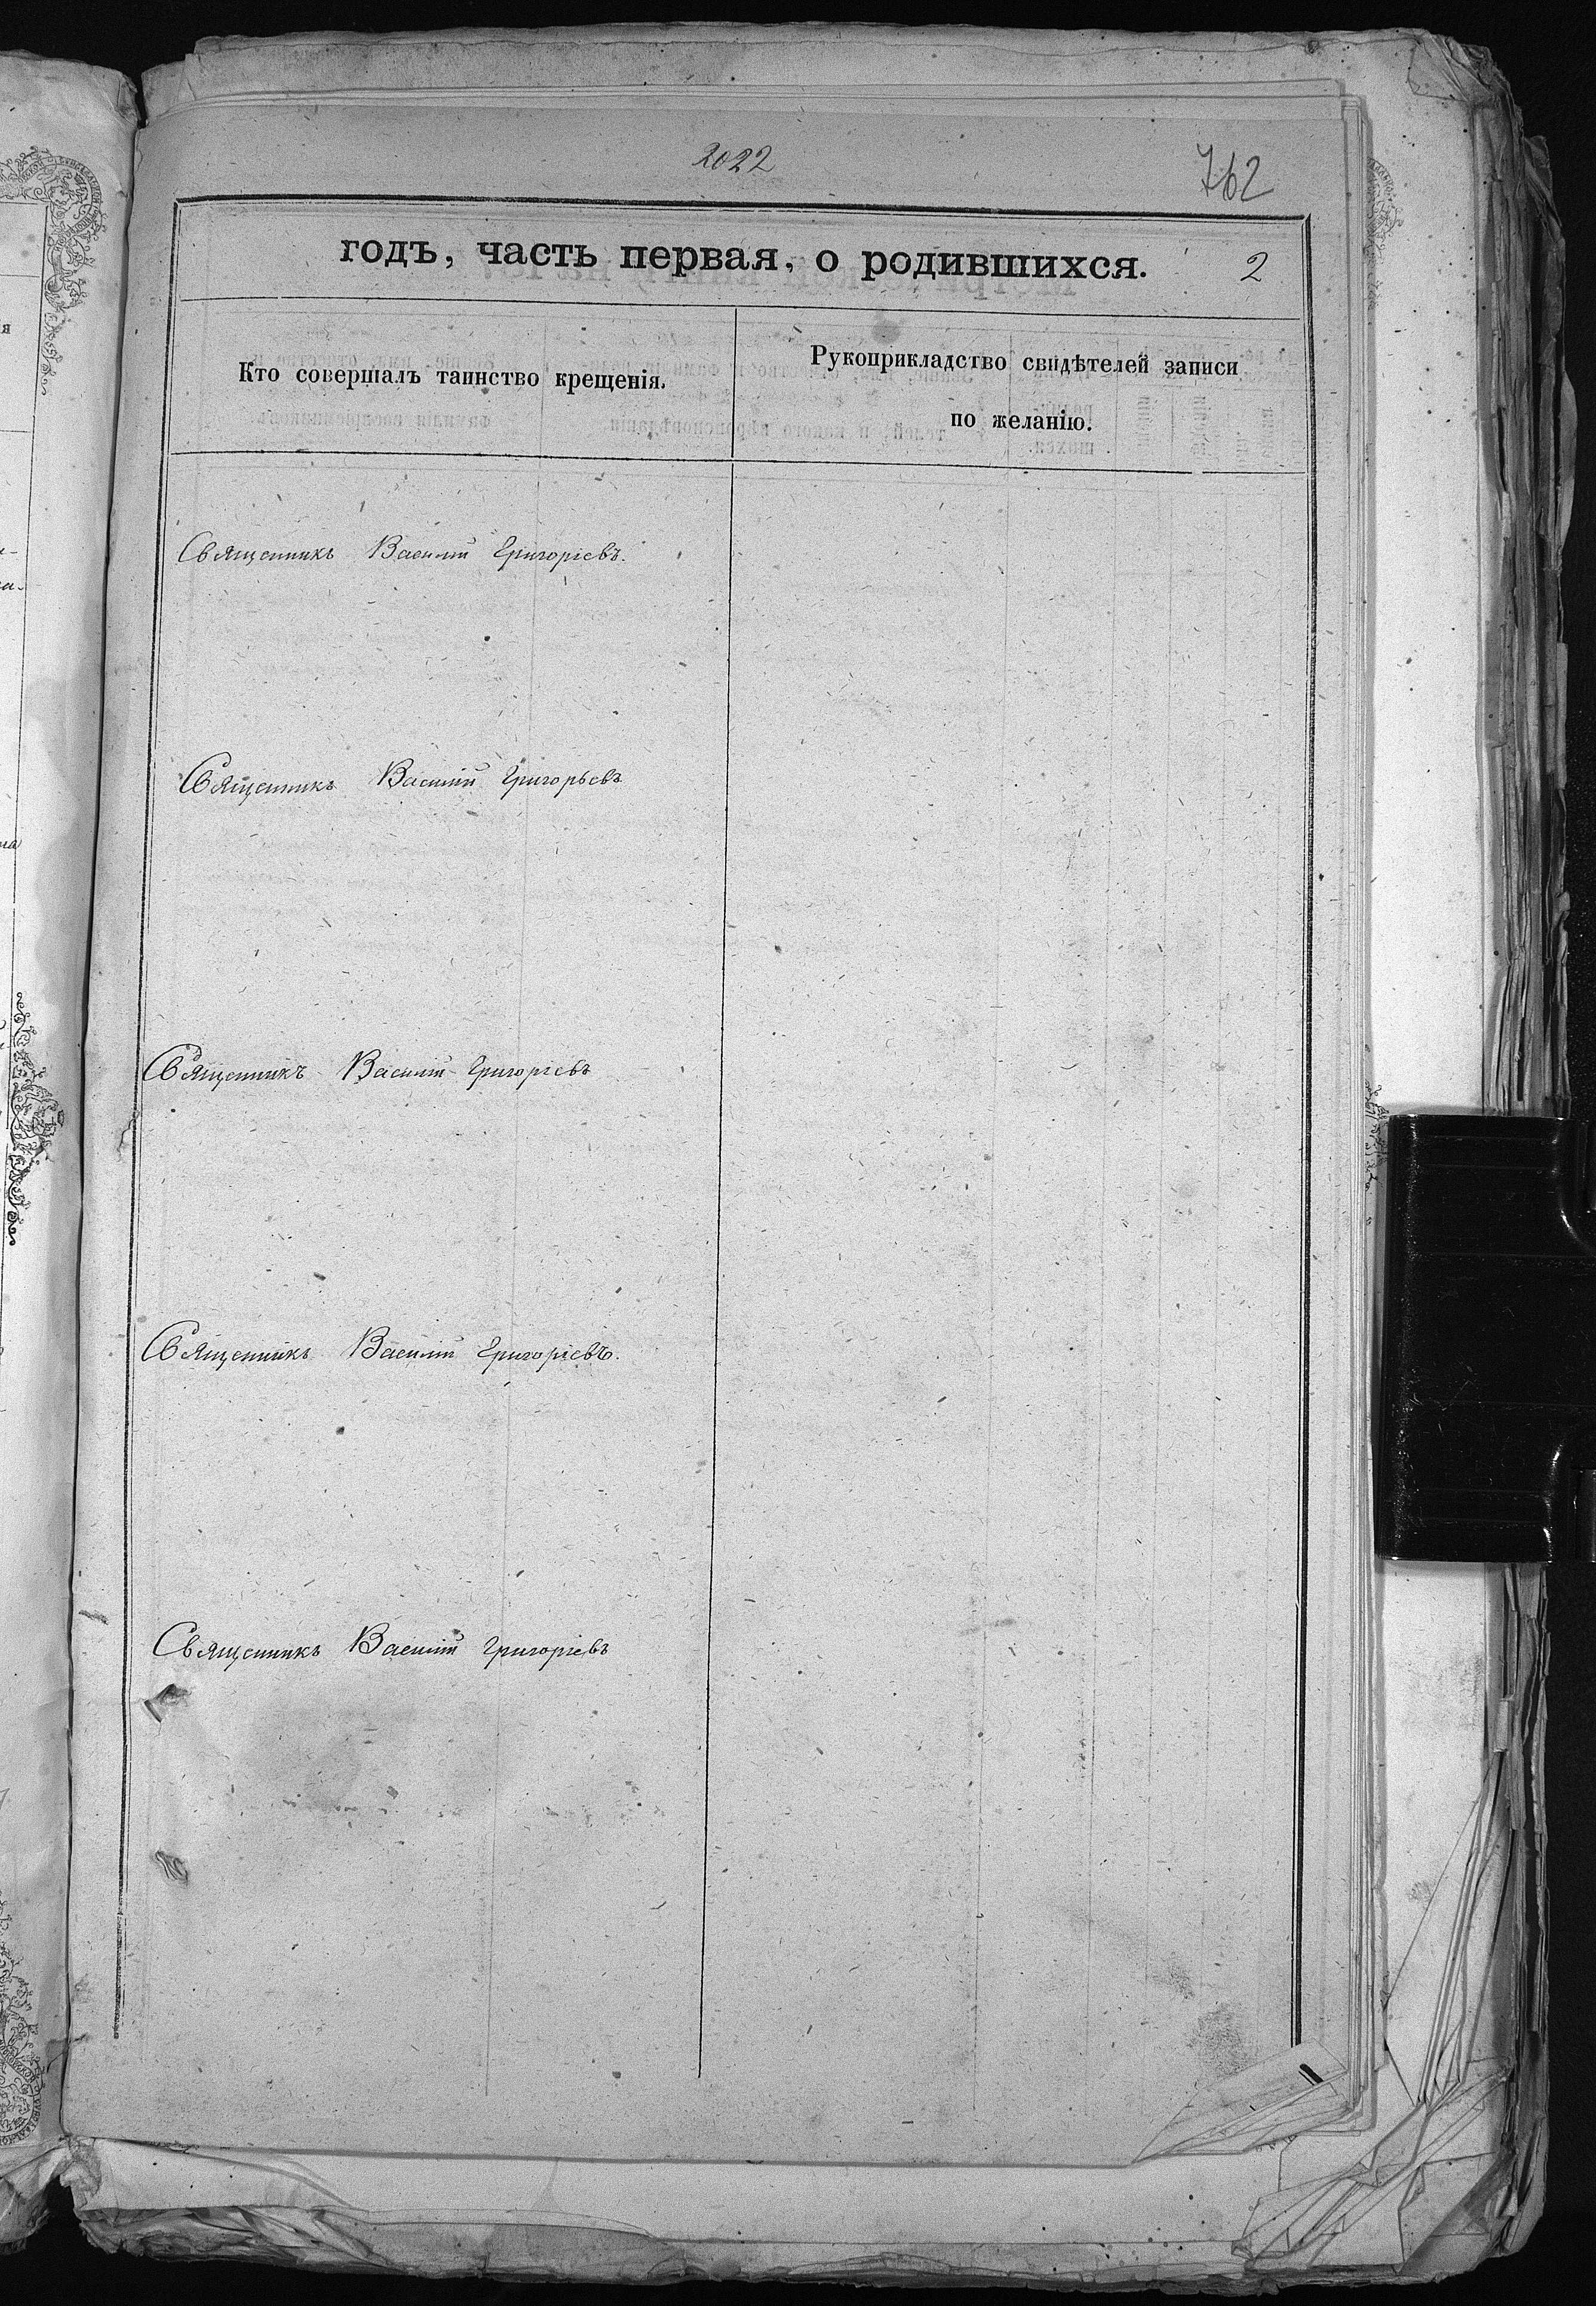 2022
762
годъ, часть первая, о родившихся.
2
Кто совершалъ таинство крещенія.
Рукоприкладство свидѣтелей записи
по желанію.
Священникъ Василій Григоріевъ.
Священникъ Василій Григорьевъ
Священникъ Василій Григоріевъ
Священникъ Василій Григоріевъ.
Священникъ Василій Григоріевъ